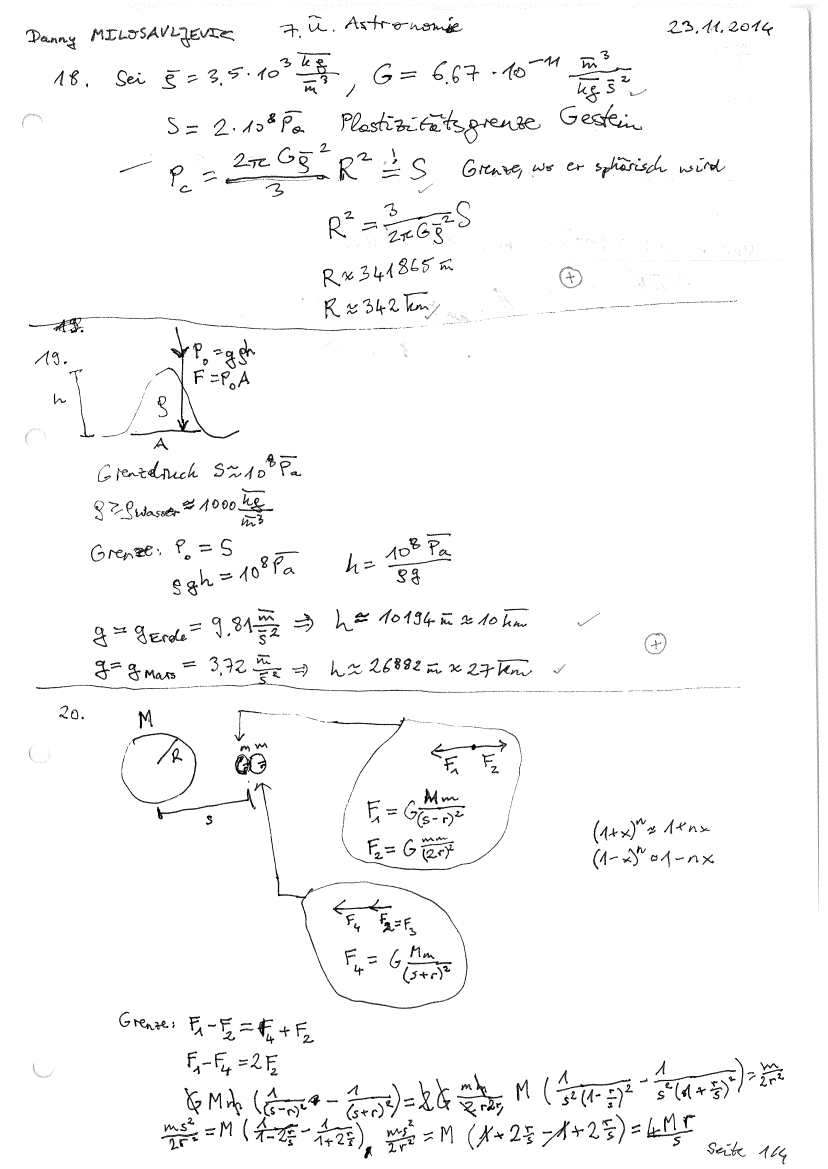 Danny MILOSAVLJEVIC 7. Ü. Astronomie 23.11.2014
18. Sei ρ̄ = 3,5·10³ kg/m³, G = 6,67·10⁻¹¹ m³/(kg s²)
S = 2·10⁸ Pa Plastizitätsgrenze Gestein
P_c = (2π G ρ̄²)/3 R² =! S Grenze, wo er sphärisch wird
R² = 3/(2π G ρ̄²) S
R ≈ 341865 m
R ≈ 342 km
19.
P₀ = ρgh
F = P₀A
h
ρ
A
Grenzdruck S ≈ 10⁸ Pa
ρ ≥ ρ_Wasser ≈ 1000 kg/m³
Grenze: P₀ = S
ρgh = 10⁸ Pa h = 10⁸ Pa/(ρg)
g = g_Erde = 9,81 m/s² ⇒ h ≈ 10194 m ≈ 10 km
g = g_Mars = 3,72 m/s² ⇒ h ≈ 26882 m ≈ 27 km
20.
M
R
m m
s
F₁ F₂
F₁ = G Mm/(s-r)²
F₂ = G mm/(2r)²
(1+x)ⁿ ≈ 1+nx
(1-x)ⁿ ≈ 1-nx
F₄ F₂=F₃
F₄ = G Mm/(s+r)²
Grenze: F₁-F₂ = F₄+F₂
F₁-F₄ = 2F₂
G M m (1/(s-r)² - 1/(s+r)²) = 2 G mm/(2r2r), M (1/(s²(1-r/s)²) - 1/(s²(1+r/s)²)) = m/(2r²)
ms²/(2r²) = M (1/(1-2r/s) - 1/(1+2r/s)), ms²/(2r²) = M (1+2r/s-1+2r/s) = 4M r/s
Seite 1/4